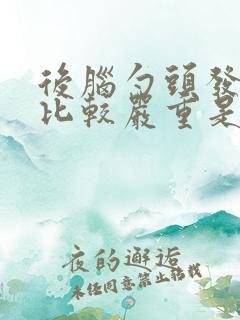 後腦勺頭發
比較嚴重是
夜的邂逅
未经同意禁止转载